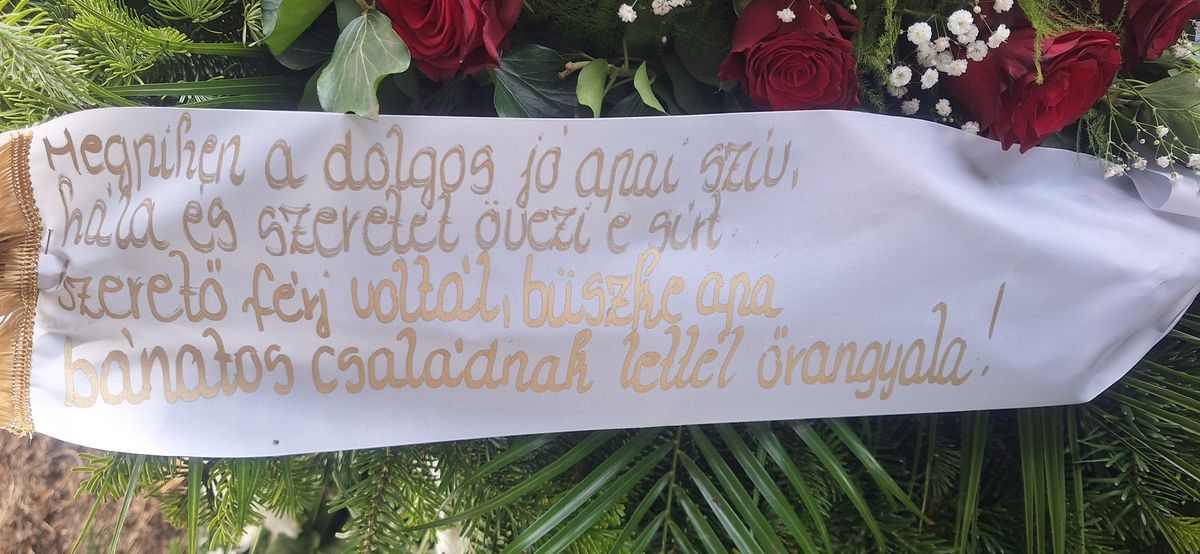 Megpihen a dolgos jó apai szív,
hála és szeretet övezi e sírt.
szerető férj voltál, büszke apa
bánatos családnak lettél őrangyala!